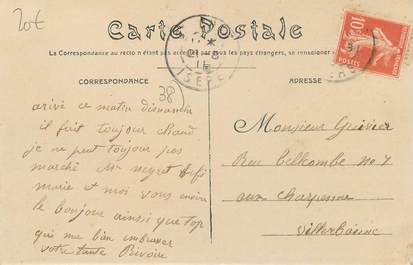 20€
Carte Postale
La Correspondance au recto n'étant pas acceptée par tous les pays étrangers, se renseigner
CORRESPONDANCE
ADRESSE
ISÈRE
10
POSTES
38
arivé ce matin dimanche
il fait toujour chaud
je ne peut toujour pas
marché Mr negret
marie et moi vous envoi
le bonjour ainsi que
qui me bien embrasser
votre tante Rivoire
Monsieur
Rue Collcombe No 7
aux Charpenne
Villerbanne